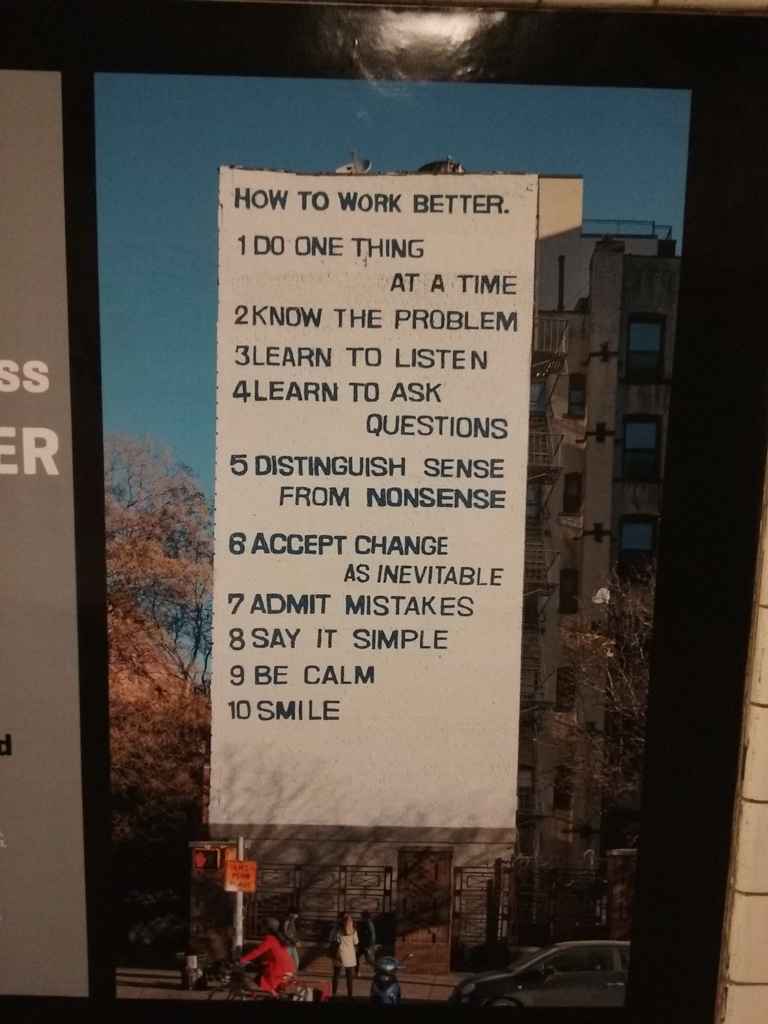 HOW TO WORK BETTER.
1 DO ONE THING
AT A TIME
2 KNOW THE PROBLEM
3 LEARN TO LISTEN
4 LEARN TO ASK
QUESTIONS
5 DISTINGUISH SENSE
FROM NONSENSE
6 ACCEPT CHANGE
AS INEVITABLE
7 ADMIT MISTAKES
8 SAY IT SIMPLE
9 BE CALM
10 SMILE
SS
ER
d